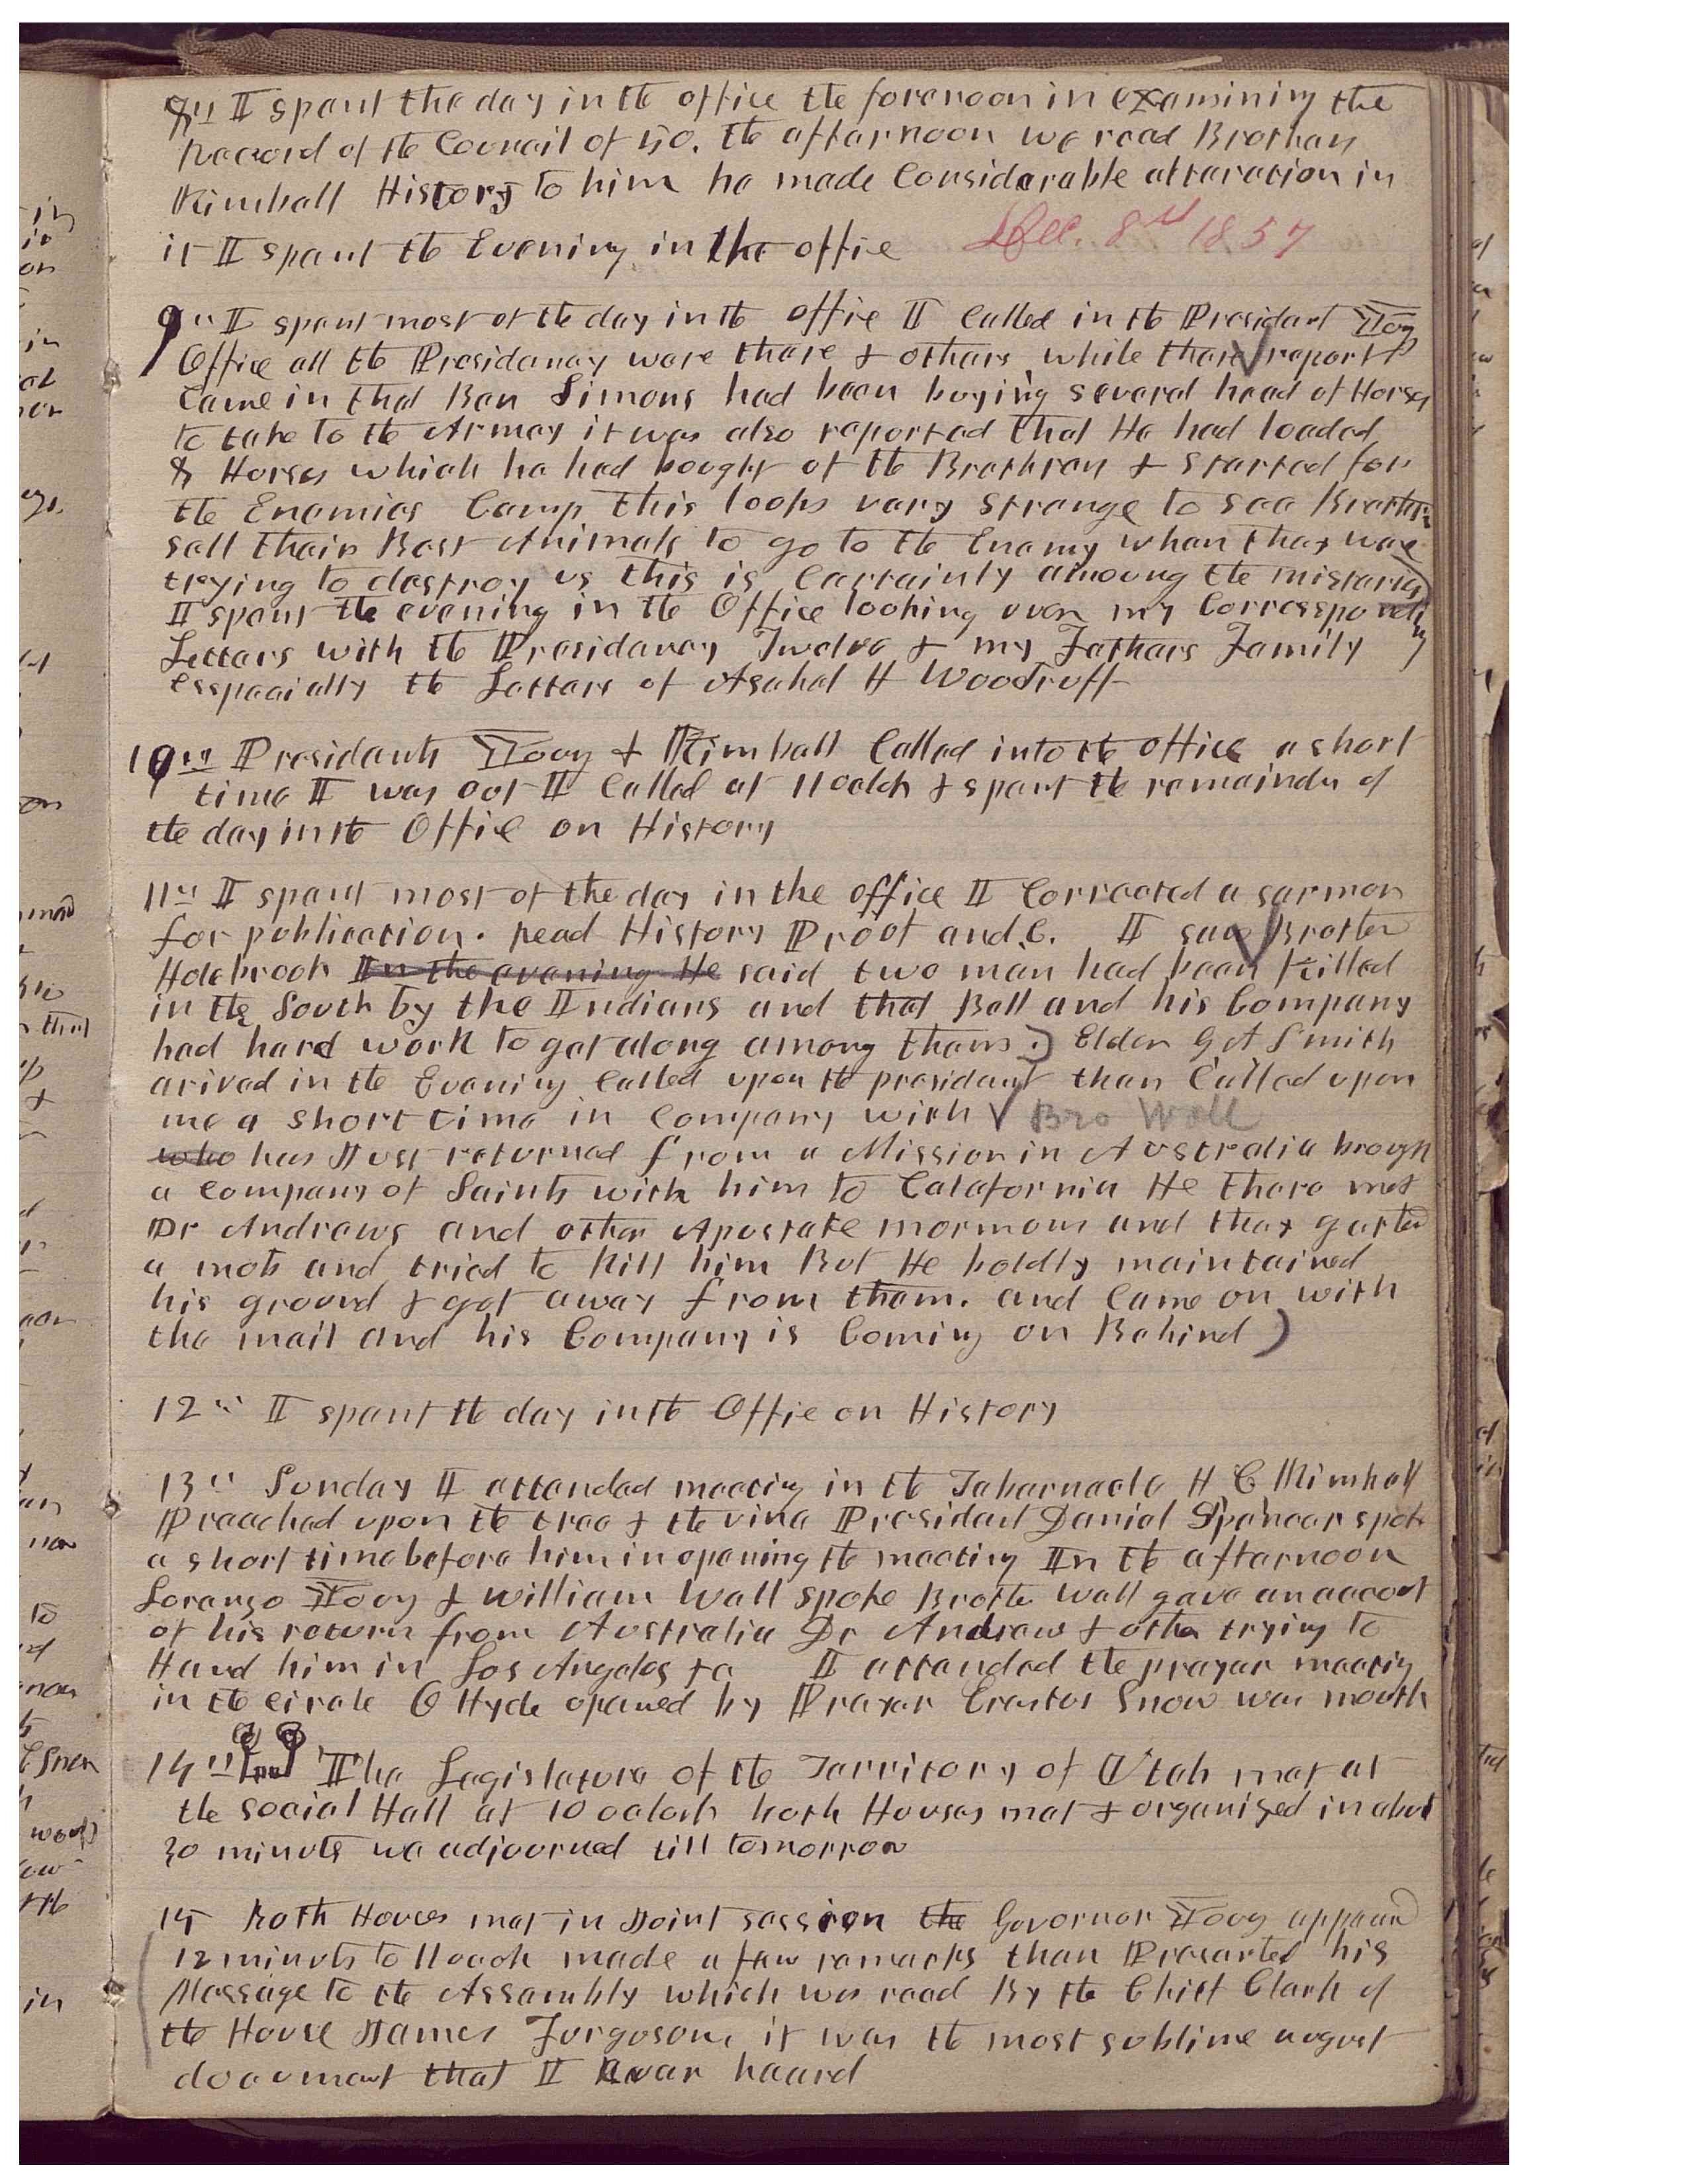 8th I spent the day in the office the forenoon in examining the
Record of the Council of 50. the afternoon we read Brother
Kimball History to him he made Considerable alteration in
it I spent the Evening in the office Dec. 8th 1857
9th I spent most of the day in the office I Called in the President Young
Office all the Presidency were there & others while there report
Came in that Ben Simons had been buying several head of Horses
to take to the Armey it was also reported that He had loaded
8 Horses which he had bought of the Brethren & started for
the Enemies Camp this looks very strange to see Brethren
sell their Best Animals to go to the Enemy when they were
trying to destroy us this is Certainly amoung the misteries
I spent the evening in the Office looking over my Corresponding
Letters with the Presidency Twelve & my Fathers Family
esspecially the Letters of Asahel H Woodruff
10th Presidents Young & Kimball Called into the office a short
time I was out I Called at 11 oclock & spent the remainder of
the day in the Office on History
11th I spent most of the day in the office I Corrected a sermon
for publication. read History Proof and C. I saw Brother
Holebrook In the evening He said two men had been killed
in the South by the Indians and that Bell and his Company
had hard work to get along among them.) Elder G A Smith
arived in the Evening Called upon the president then Called upon
me a short time in Company with Bro Wall
who has Just returned from a Mission in Australia brought
a Company of Saints with him to Calafornia He there met
Dr Andrews and other Apostate mormons and they gotted
a mob and tried to kill him But He boldly maintained
his ground & got away from them. and Came on with
the mail and his Company is Coming on Behind)
12th I spent the day in the Office on History
13th Sunday I attended meeting in the Tabernacle H C Kimball
Preached upon the tree & the vine President Daniel Spencer spoke
a short time before him in opening the meeting In the afternoon
Loranzo Young & William Wall spoke Brother Wall gave an account
of his return from Australia Dr Andrew & other trying to
Hand him in Los Angeles &c I attended the prayer meeting
in the circle O Hyde opened by Prayer Erastus Snow was mouth
14th The Legislature of the Territory of Utah met at
the social Hall at 10 oclock both Houses met & organized in about
30 minuts we adjourned till tomorrow
15 Both Houses met in Joint session the Governor Young appeared
12 minuts to 11 oclok made a few remarks then Presented his
Message to the Assembly which was read By the Chief Clerk of
the House James Furguson, it was the most sublime august
document that I ever heard